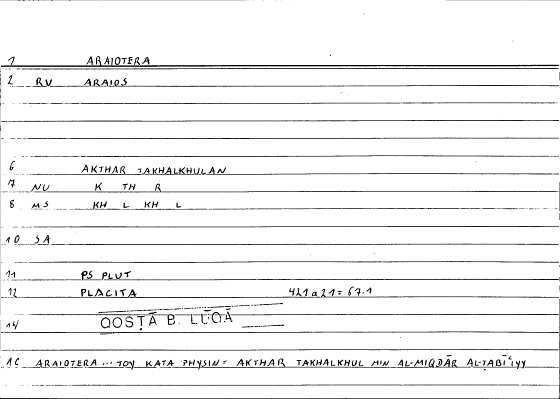 1 ARAIOTERA
2 RU ARAIOS
6 AKTHAR TAKHALKHULAN
7 NU K TH R
8 MS KH L KH L
10 SA
11 PS PLUT
12 PLACITA 421 a 21 = 67.1
14 QOSṬĀ B. LŪQĀ
16 ARAIOTERA ... TOY KATA PHYSIN = AKTHAR TAKHALKHUL MIN AL-MIQDĀR AL-ṬABĪʿIYY